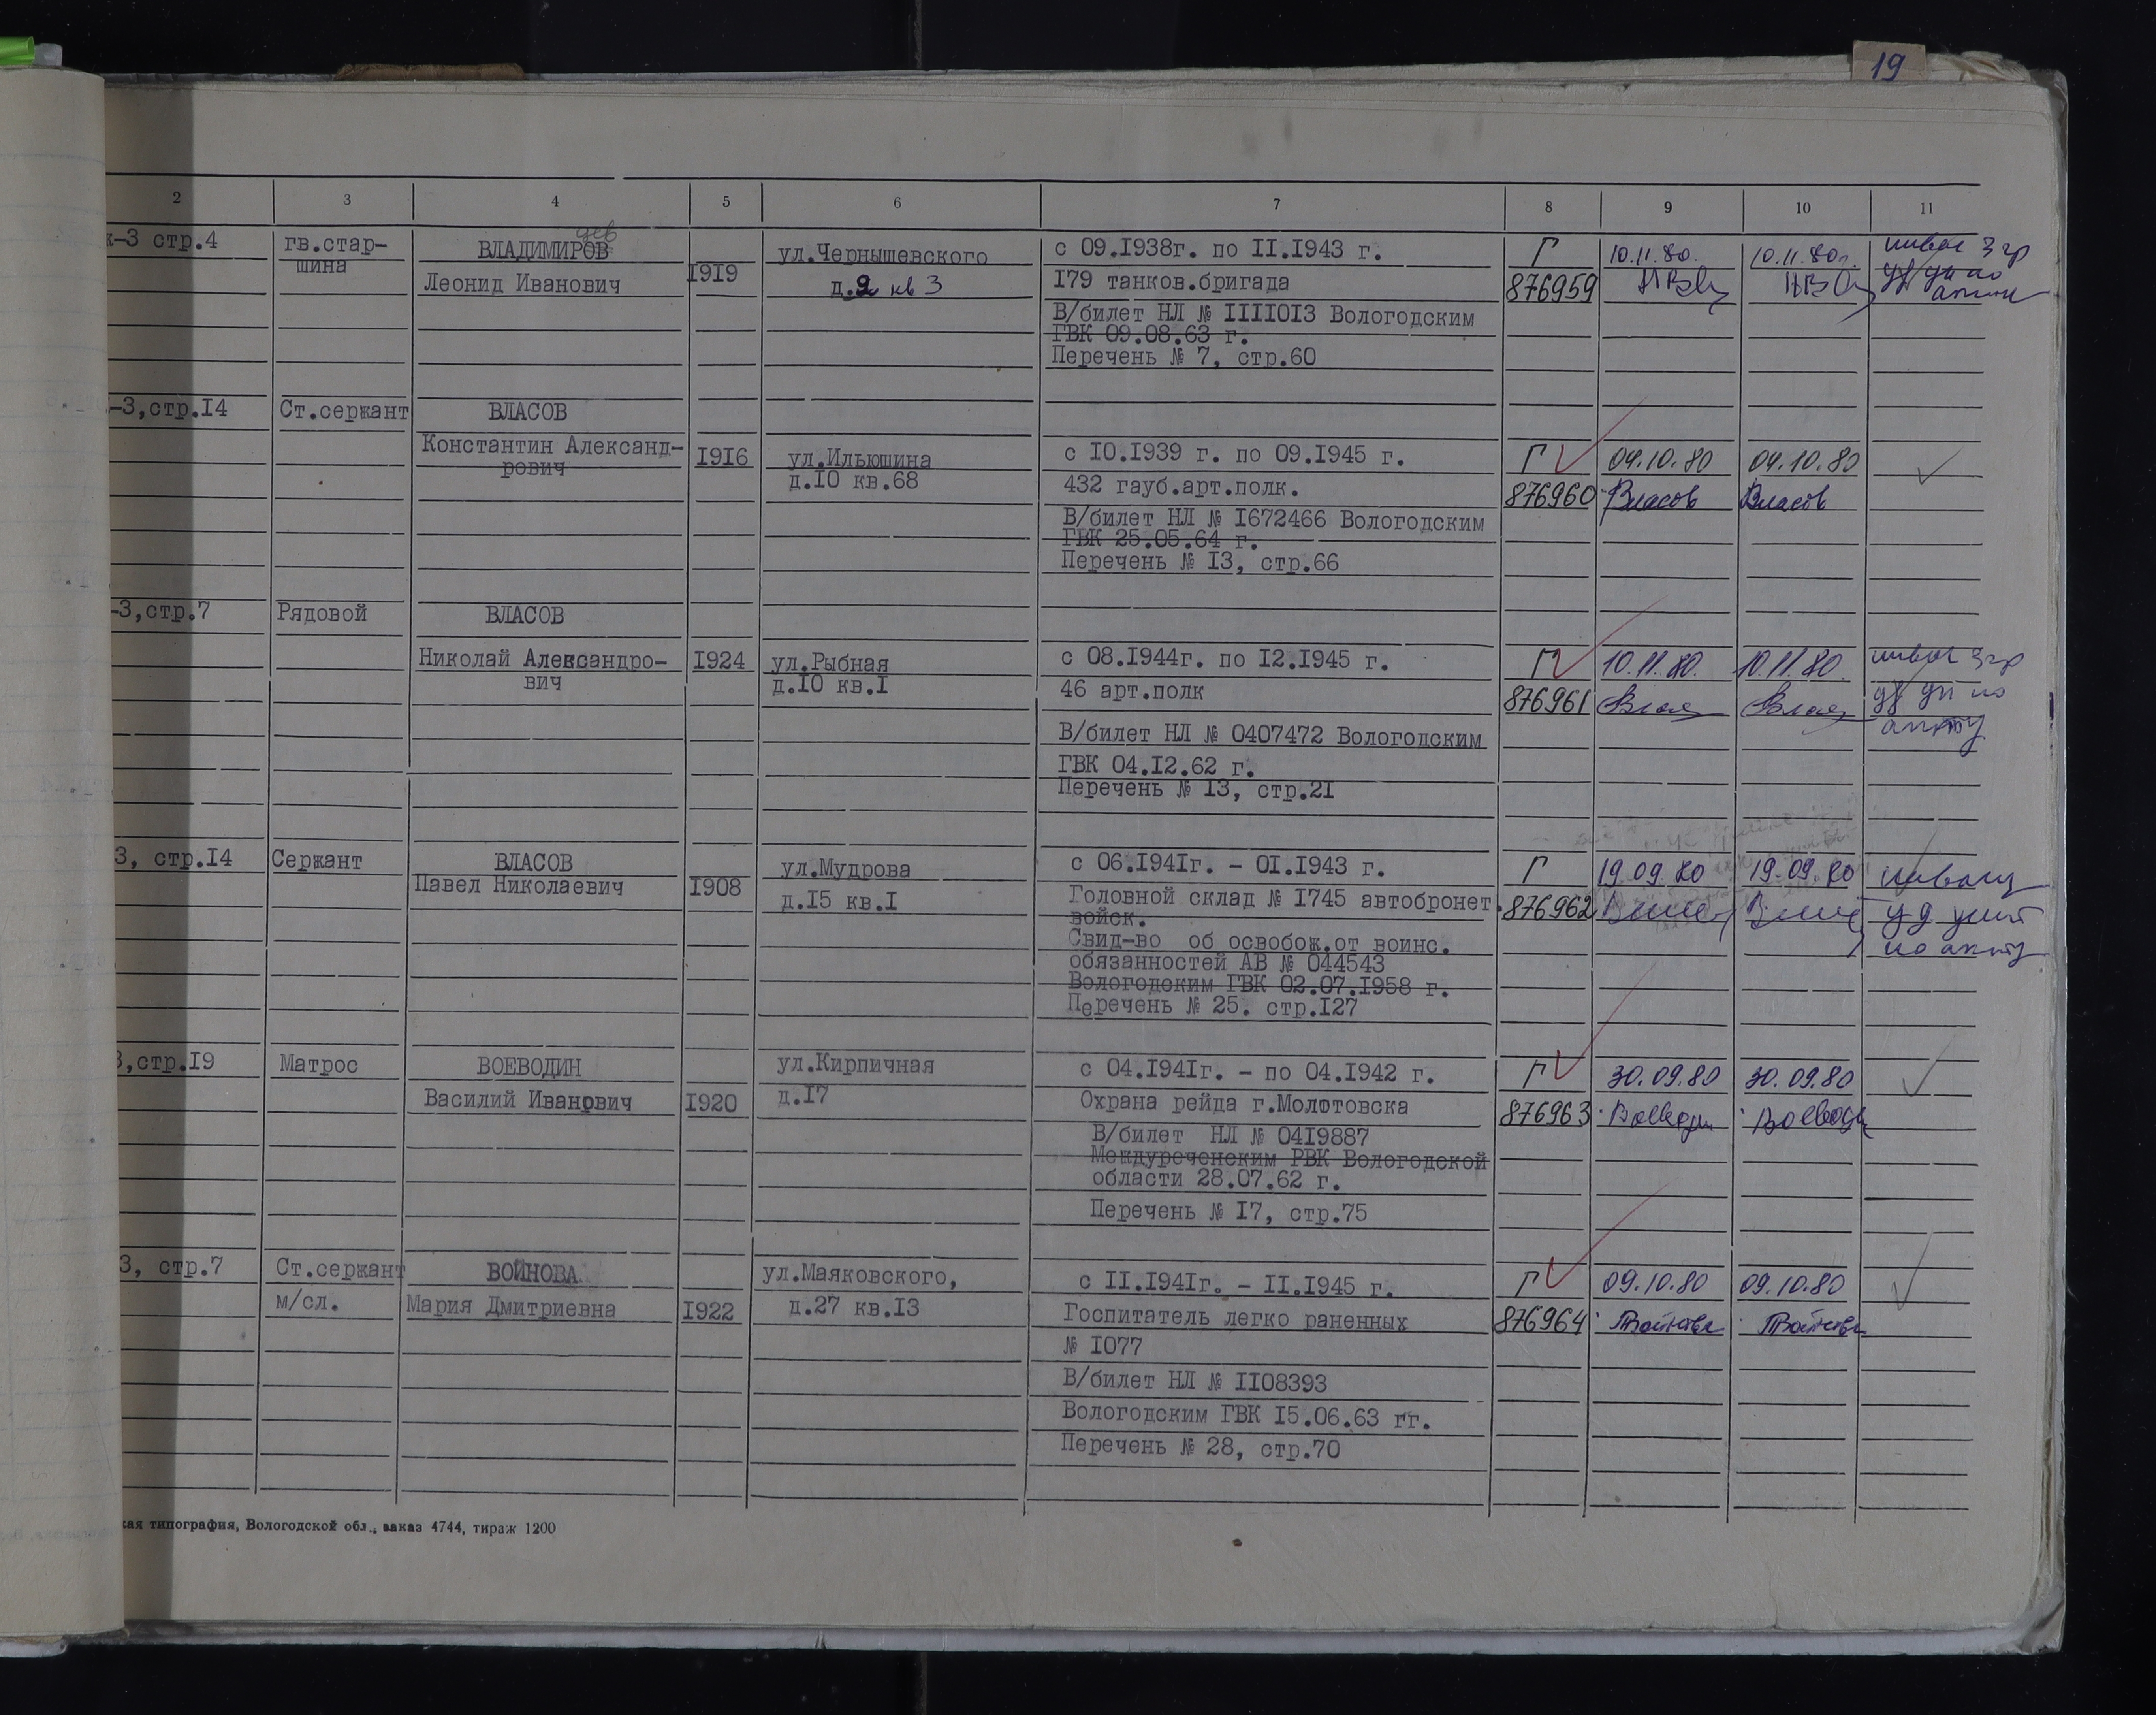 19
2 3 4 5 6 7 8 9 10 11
к-3 стр.4 гв.стар- ВЛАДИМИРОВ ул.Чернышевского с 09.1938г. по 11.1943 г. Г 10.11.80. 10.11.80г. инвал 3 гр
шина
Леонид Иванович 1919 д.9 кв 3 179 танков.бригада 876959
В/билет НЛ № 1111013 Вологодским
ГВК 09.08.63 г.
Перечень № 7, стр.60
-3,стр.14 Ст.сержант ВЛАСОВ
Константин Александ- 1916 ул.Ильюшина с 10.1939 г. по 09.1945 г. Г 09.10.80 09.10.80
рович д.10 кв.68
432 гауб.арт.полк. 876960 Власов Власов
В/билет НЛ № 1672466 Вологодским
ГВК 25.05.64 г.
Перечень № 13, стр.66
-3,стр.7 Рядовой ВЛАСОВ
Николай Александро- 1924 ул.Рыбная с 08.1944г. по 12.1945 г. Г 10.11.80. 10.11.80. инвал 3 гр
вич д.10 кв.1 46 арт.полк 876961 по
акту
В/билет НЛ № 0407472 Вологодским
ГВК 04.12.62 г.
Перечень № 13, стр.21
3, стр.14 Сержант ВЛАСОВ ул.Мудрова с 06.1941г. - 01.1943 г. Г 19.09.80 19.09.80
Павел Николаевич 1908 д.15 кв.1 Головной склад № 1745 автобронет. 876962
войск.
Свид-во об освобож.от воинс. по акту
обязанностей АВ № 044543
Вологодским ГВК 02.07.1958 г.
Перечень № 25. стр.127
3,стр.19 Матрос ВОЕВОДИН ул.Кирпичная с 04.1941г. - по 04.1942 г. Г 30.09.80 30.09.80
Василий Иванович 1920 д.17 Охрана рейда г.Молотовска 876963 Воеводин Воеводин
В/билет НЛ № 0419887
Междуреченским РВК Вологодской
области 28.07.62 г.
Перечень № 17, стр.75
3, стр.7 Ст.сержант ВОЙНОВА ул.Маяковского, с 11.1941г. - 11.1945 г. Г 09.10.80 09.10.80
м/сл. Мария Дмитриевна 1922 д.27 кв.13 Госпитатель легко раненных 876964 Войнова Войнова
№ 1077
В/билет НЛ № 1108393
Вологодским ГВК 15.06.63 гг.
Перечень № 28, стр.70
кая типография, Вологодской обл., заказ 4744, тираж 1200